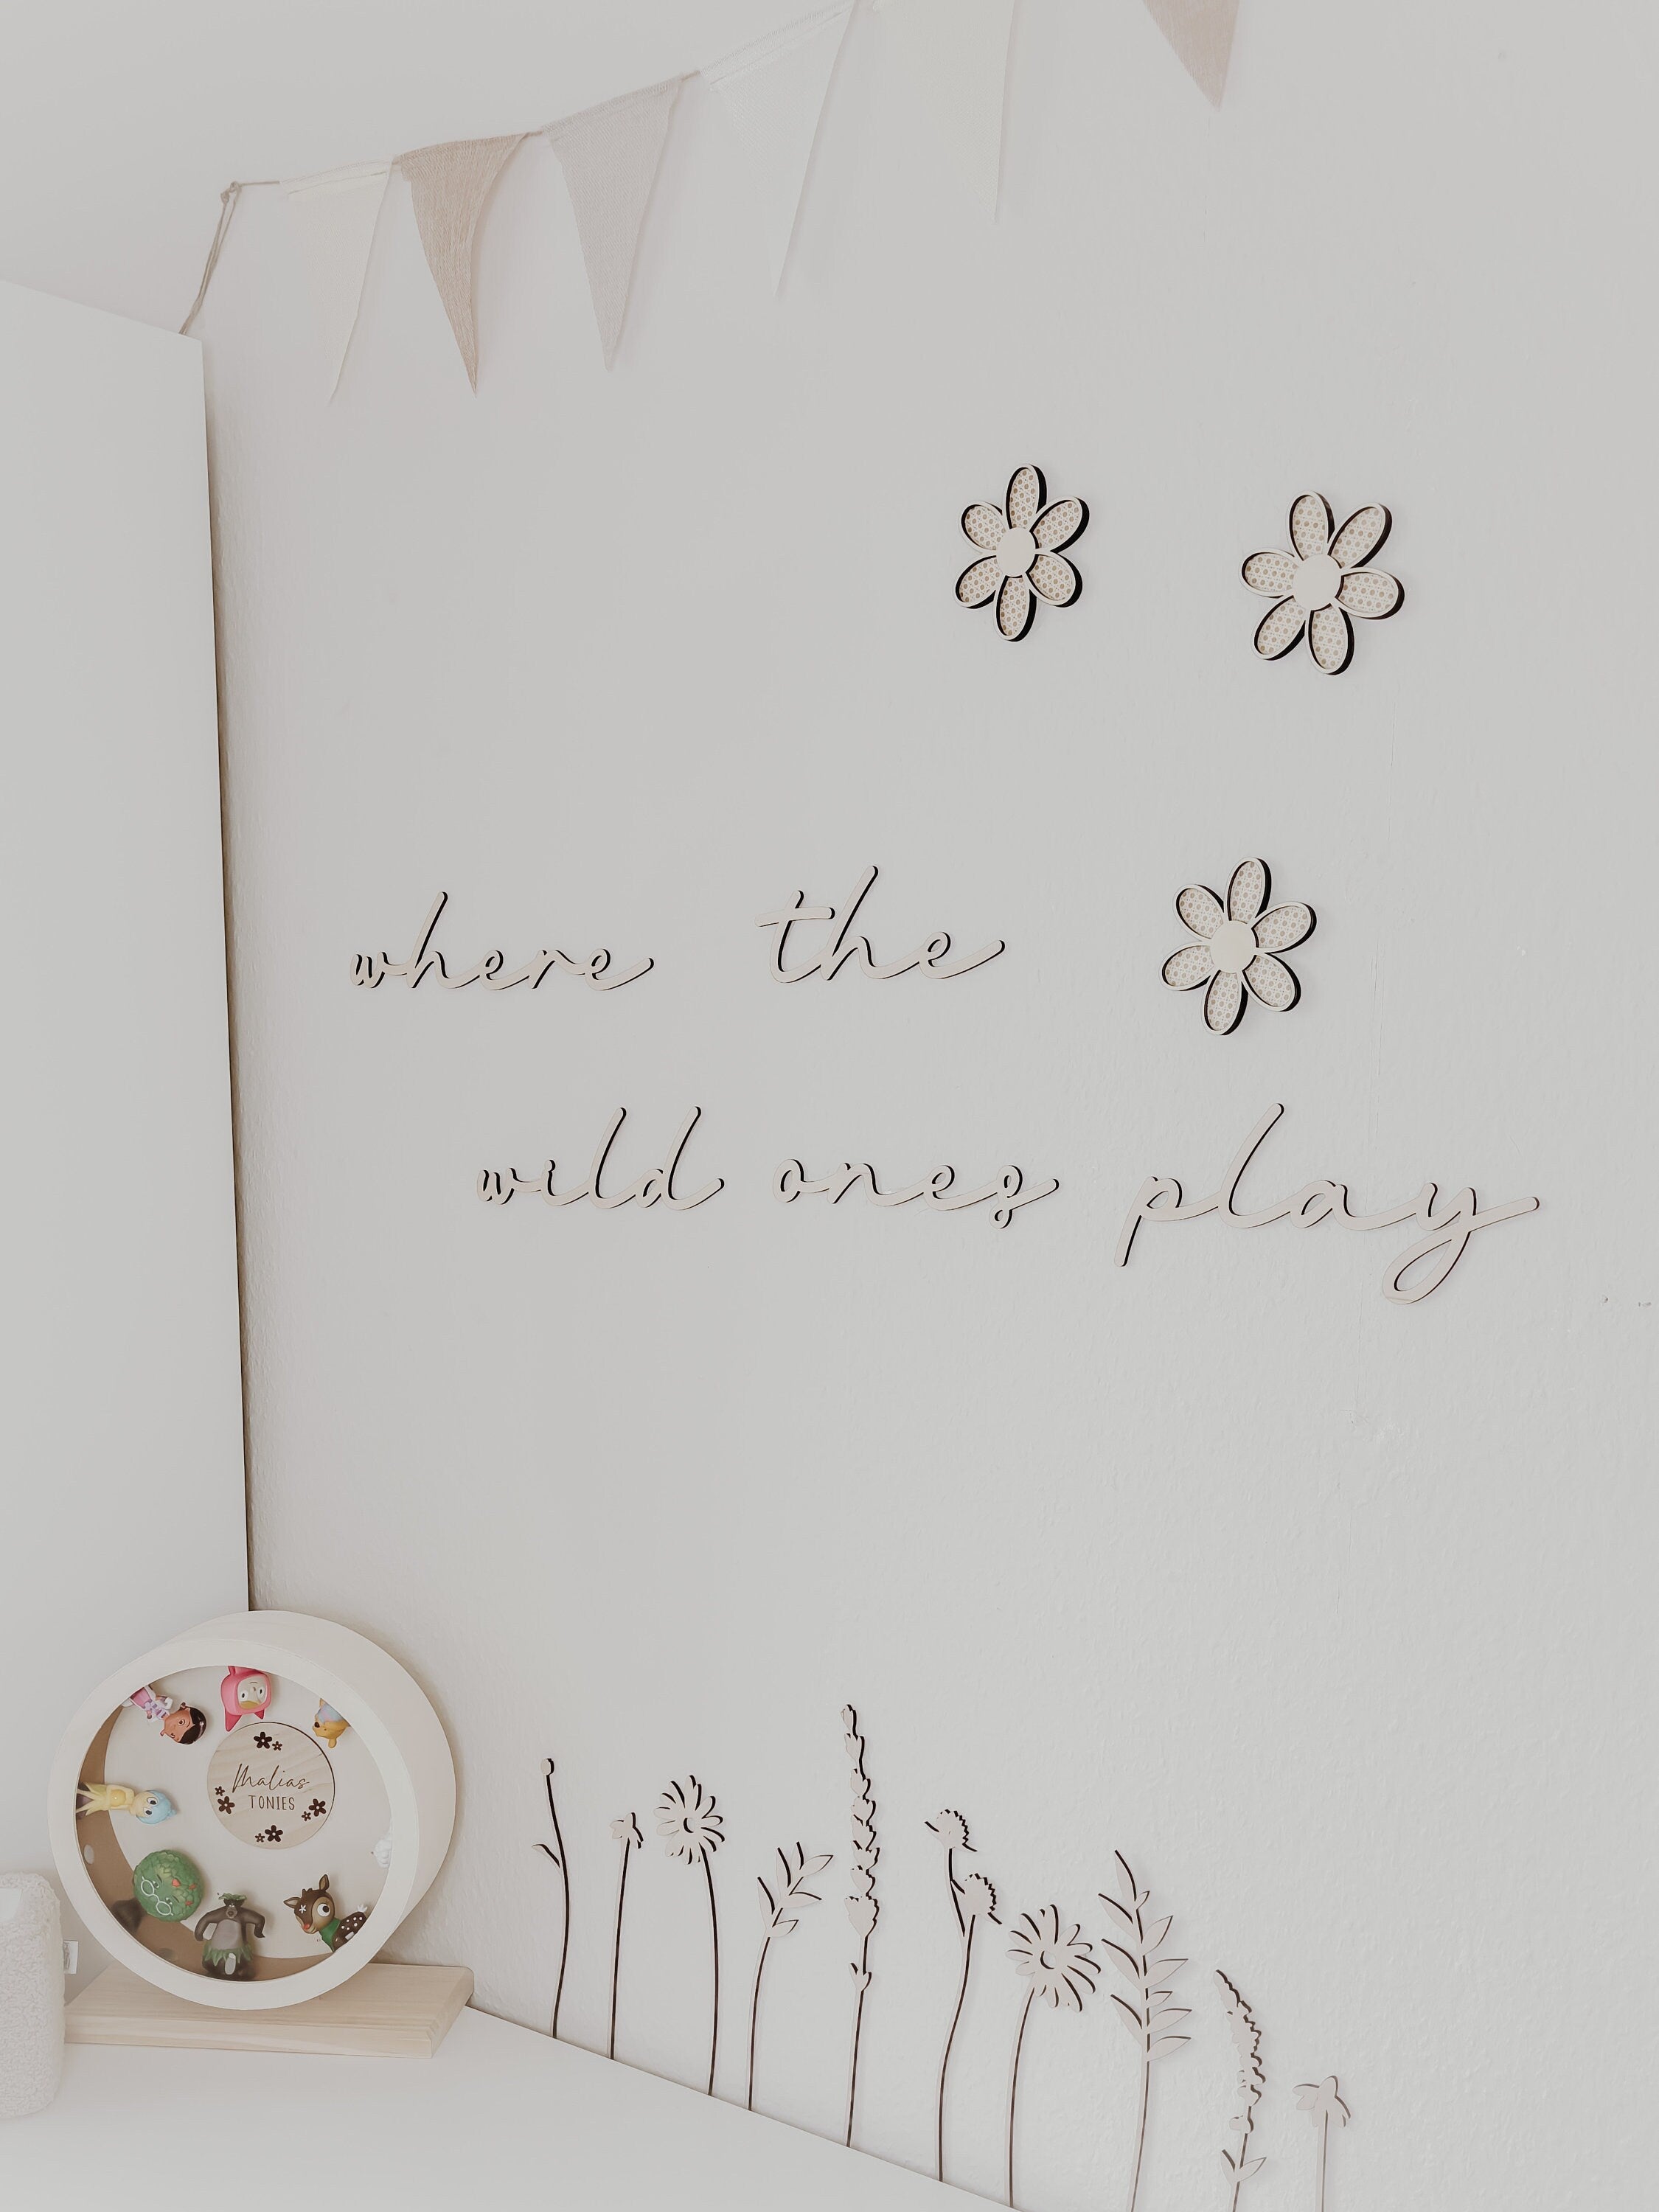 where the
wild ones play
Malias
TONIES